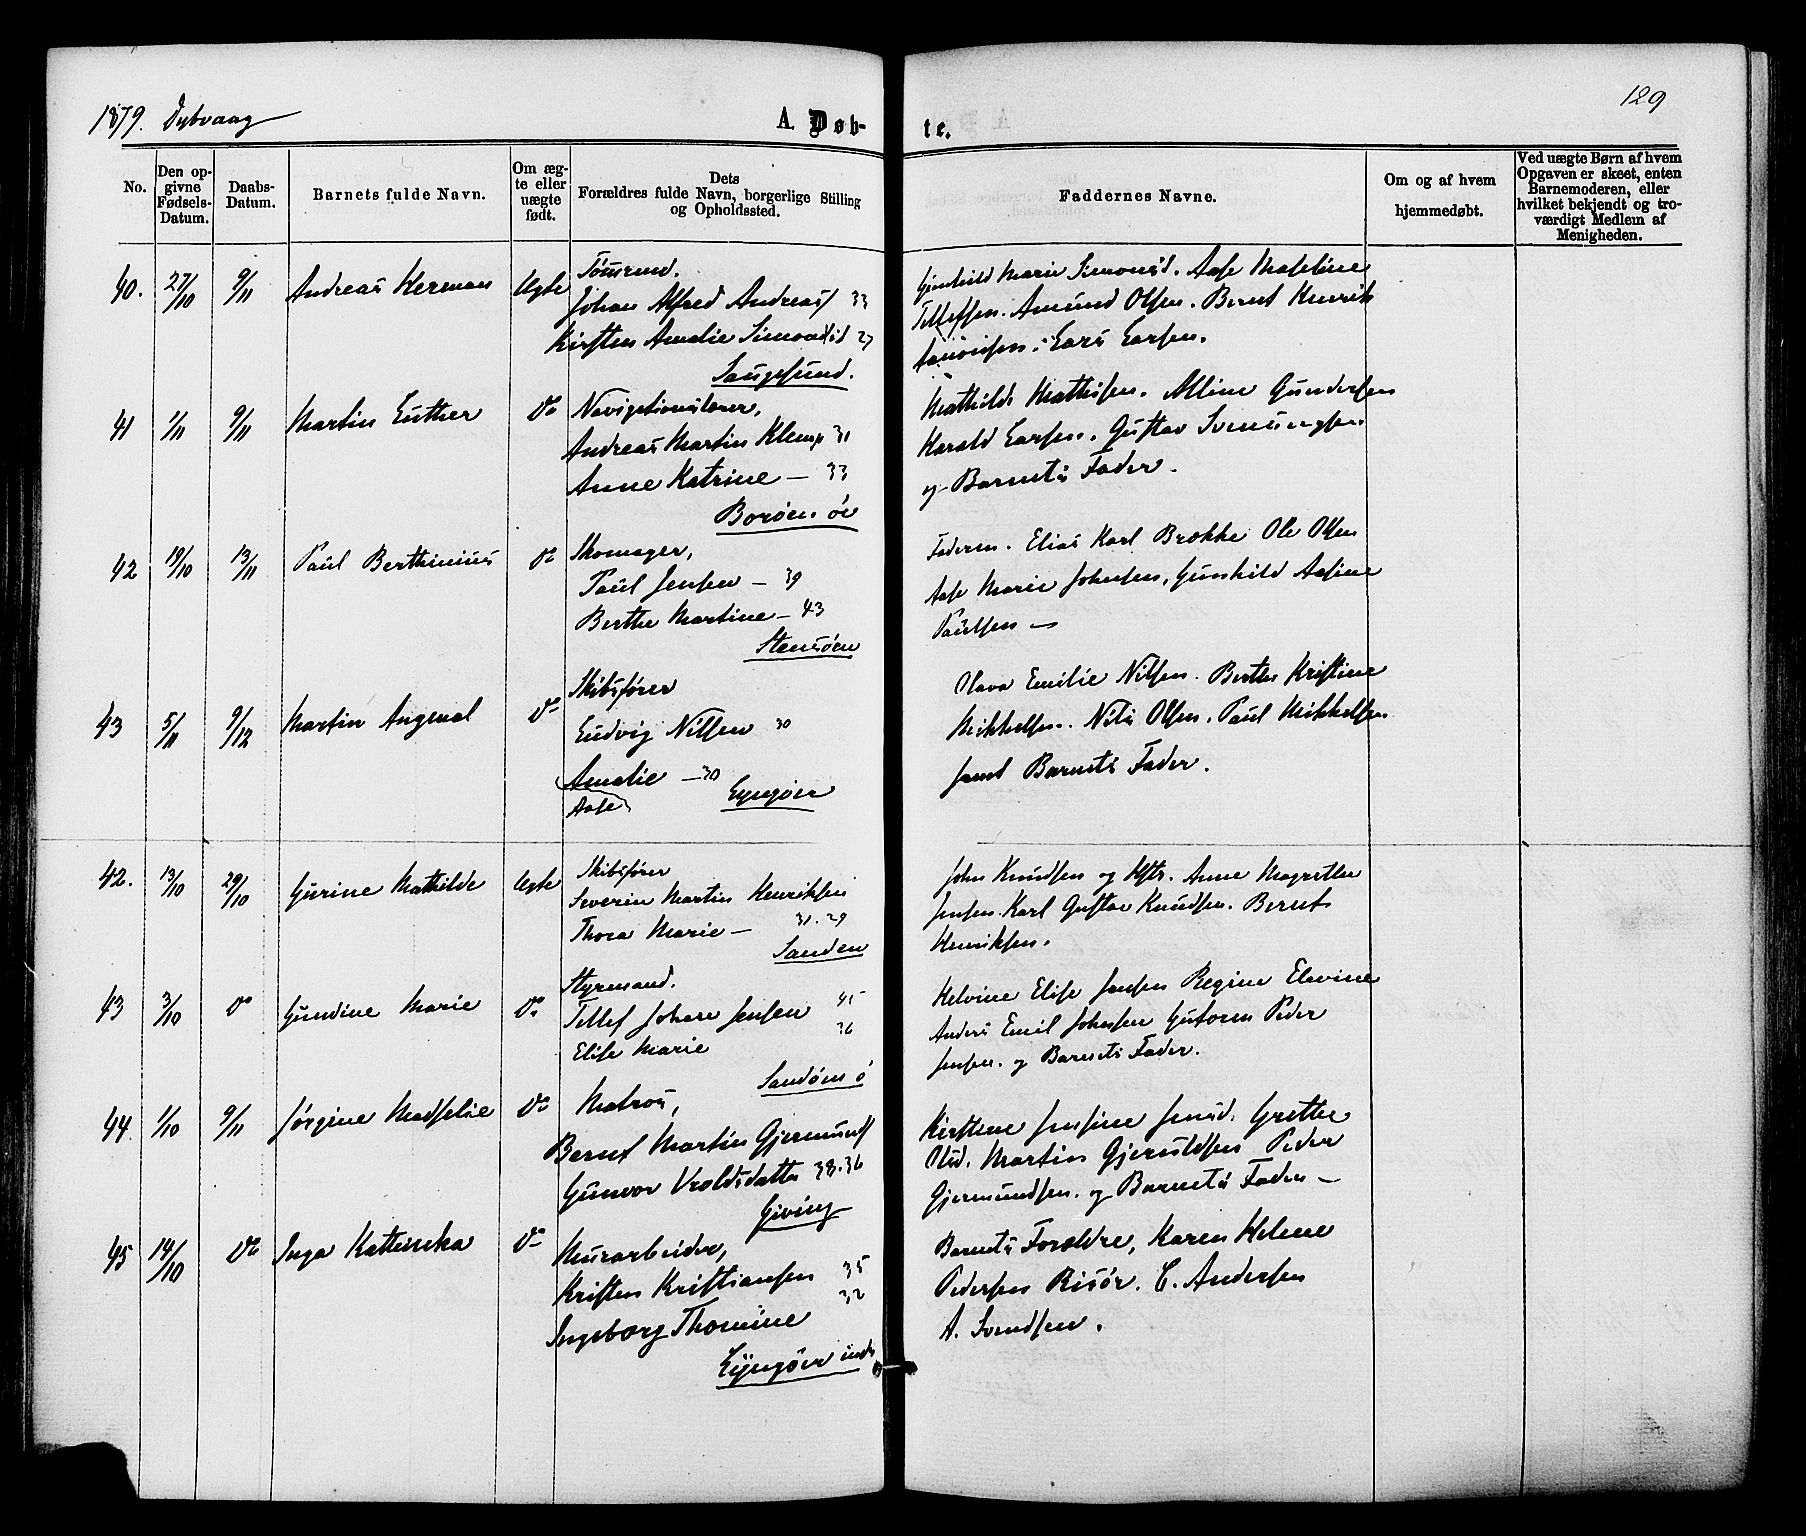 1879. Dybvaag
A. Døb-
te.
129
No.
Den op-
givne
Fødsels-
Datum.
Daabs-
Datum.
Barnets fulde Navn.
Om æg-
te eller
uægte
født.
Dets
Forældres fulde Navn, borgerlige Stilling
og Opholdssted.
Faddernes Navne.
Om og af hvem
hjemmedøbt.
Ved uægte Børn af hvem
Opgaven er skeet, enten
Barnemoderen, eller
hvilket bekjendt og tro-
værdigt Medlem af
Menigheden.
40. 27/10 9/11 Andreas Herman Ægte Tømrmd.
Johan Alfred Andreass 33
Kirsten Amalie Simonsd 27
Saugesund.
Gunhild Marie Simonsd. Aase Maseline
Tellefsen. Amund Olsen. Bernt Henrik
Lars Larsen.
41 1/11 9/11 Martin Luther Do Navigationslærer,
Andreas Martin Klemp 31
Anne Katrine — 33
Borøen. øe
Mathilde Mathisen. Alline Gundersen
Harald Larsen. Gustav Svenungsen.
og Barnets Fader.
42 19/10 13/11 Paul Berthinius Do Skomager,
Paul Jensen — 39
Berthe Martine — 43
Stensøen
Faderen. Elias Karl Brække Ole Olsen
Aase Marie Johnsen, Gunhild Aasine
Paulsen —
43 5/11 9/12 Martin Angemal Do Skibsfører
Ludvig Nilsen 30
Amalie — 30
Aase
Lyngøer
Olava Emilie Nilsen. Berthe Kristine
Mikkelsen. Nils Olsen. Paul Mikkelsen
samt Barnets Fader.
42. 13/10 29/10 Gurine Mathilde Ægte Skibsfører
Severin Martin Henriksen
Thora Marie — 31. 29
Sanden
John Knudsen og Hstr. Anne Magrethe
Jensen. Karl Gustav Knudsen. Bernt
Henriksen.
43 3/10 Do Gundine Marie Do Styrmand.
Tellef Johan Jensen 45
Elise Marie 36
Sandøen ø
Helvine Elise Jensen Regine Elevine
Anders Emil Johnsen Guttorm Peder
Jensen. og Barnets Fader.
44. 1/10 9/11 Jørgine Madselie Do Matros,
Bernt Martin Gjermunds
Gunvor Vroldsdatter 38. 36
Giving
Kirstene Jensine Jensd. Grethe
Olsd. Martin Gjeruldsen Peder
Gjermundsen. og Barnets Fader —
45 14/10 Do Inga Kattinka Do Murarbeider,
Kristen Kristiansen 35
Ingeborg Thomine 32
Lyngøer inds
Barnets Forældre, Karen Helene
Pedersen Risør. C. Andersen
A. Svendsen.